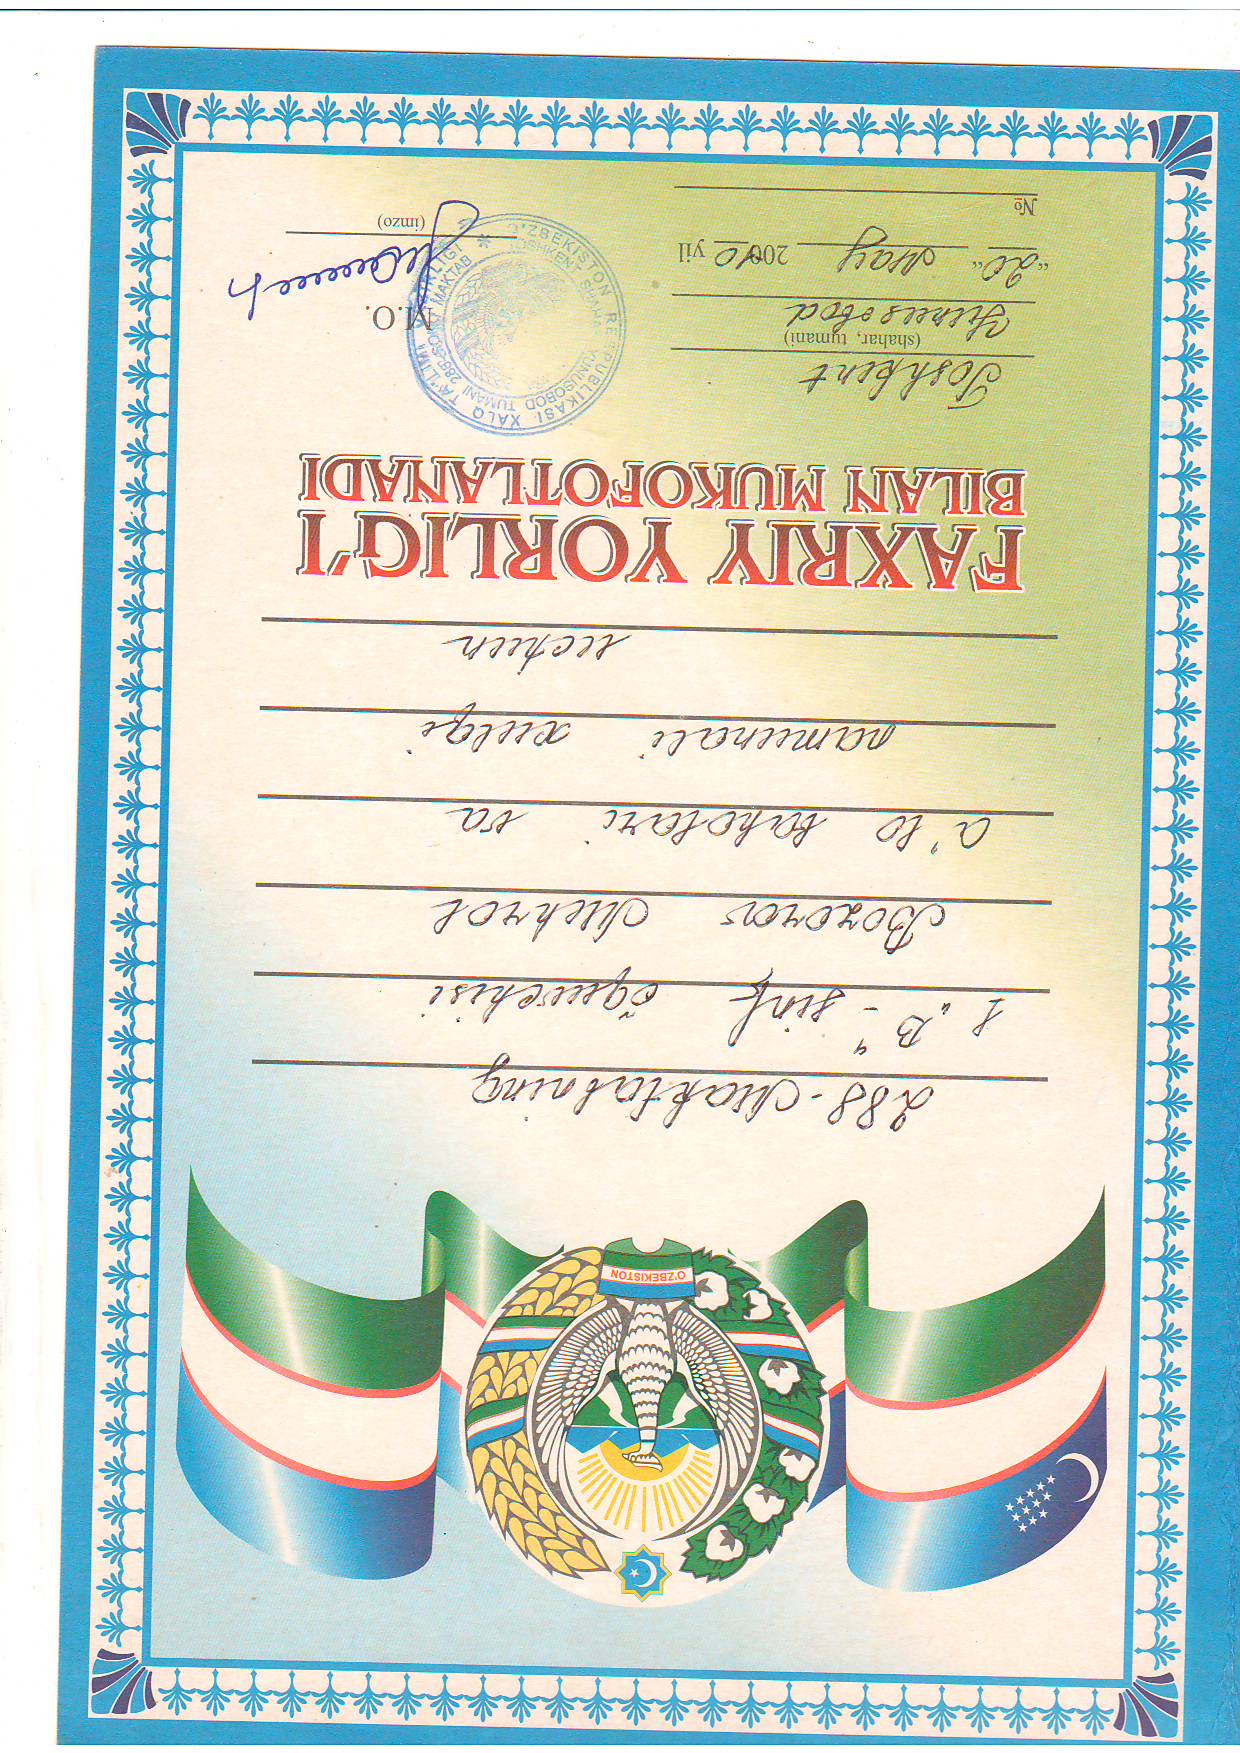 O'ZBEKISTON
288-Maktabning
1 „B“ - sinf õquvchisi
Bozorov Mehrol
a'lo baholari va
namunali xulqi
uchun
FAXRIY YORLIG'I
BILAN MUKOFOTLANADI
Toshkent
(shahar, tumani)
Yunusobod
“20“ May 2010 yil
№
O'ZBEKISTON RESPUBLIKASI XALQ TA'LIMI VAZIRLIGI
TOSHKENT SHAHAR YUNUSOBOD TUMANI 288-SONLI MAKTAB
M.O.
(imzo)